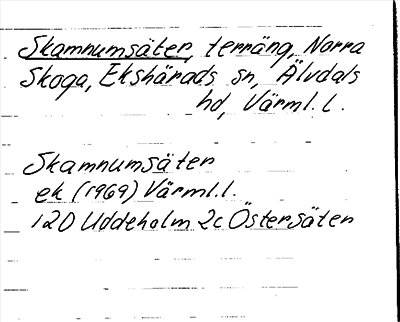 Skamnumsäter, terräng, Norra
Skoga, Ekshärads sn, Älvdals
hd, Värml. l.
Skamnumsäter
ek (1969) Värml. l.
12D Uddeholm 2c Östersäten